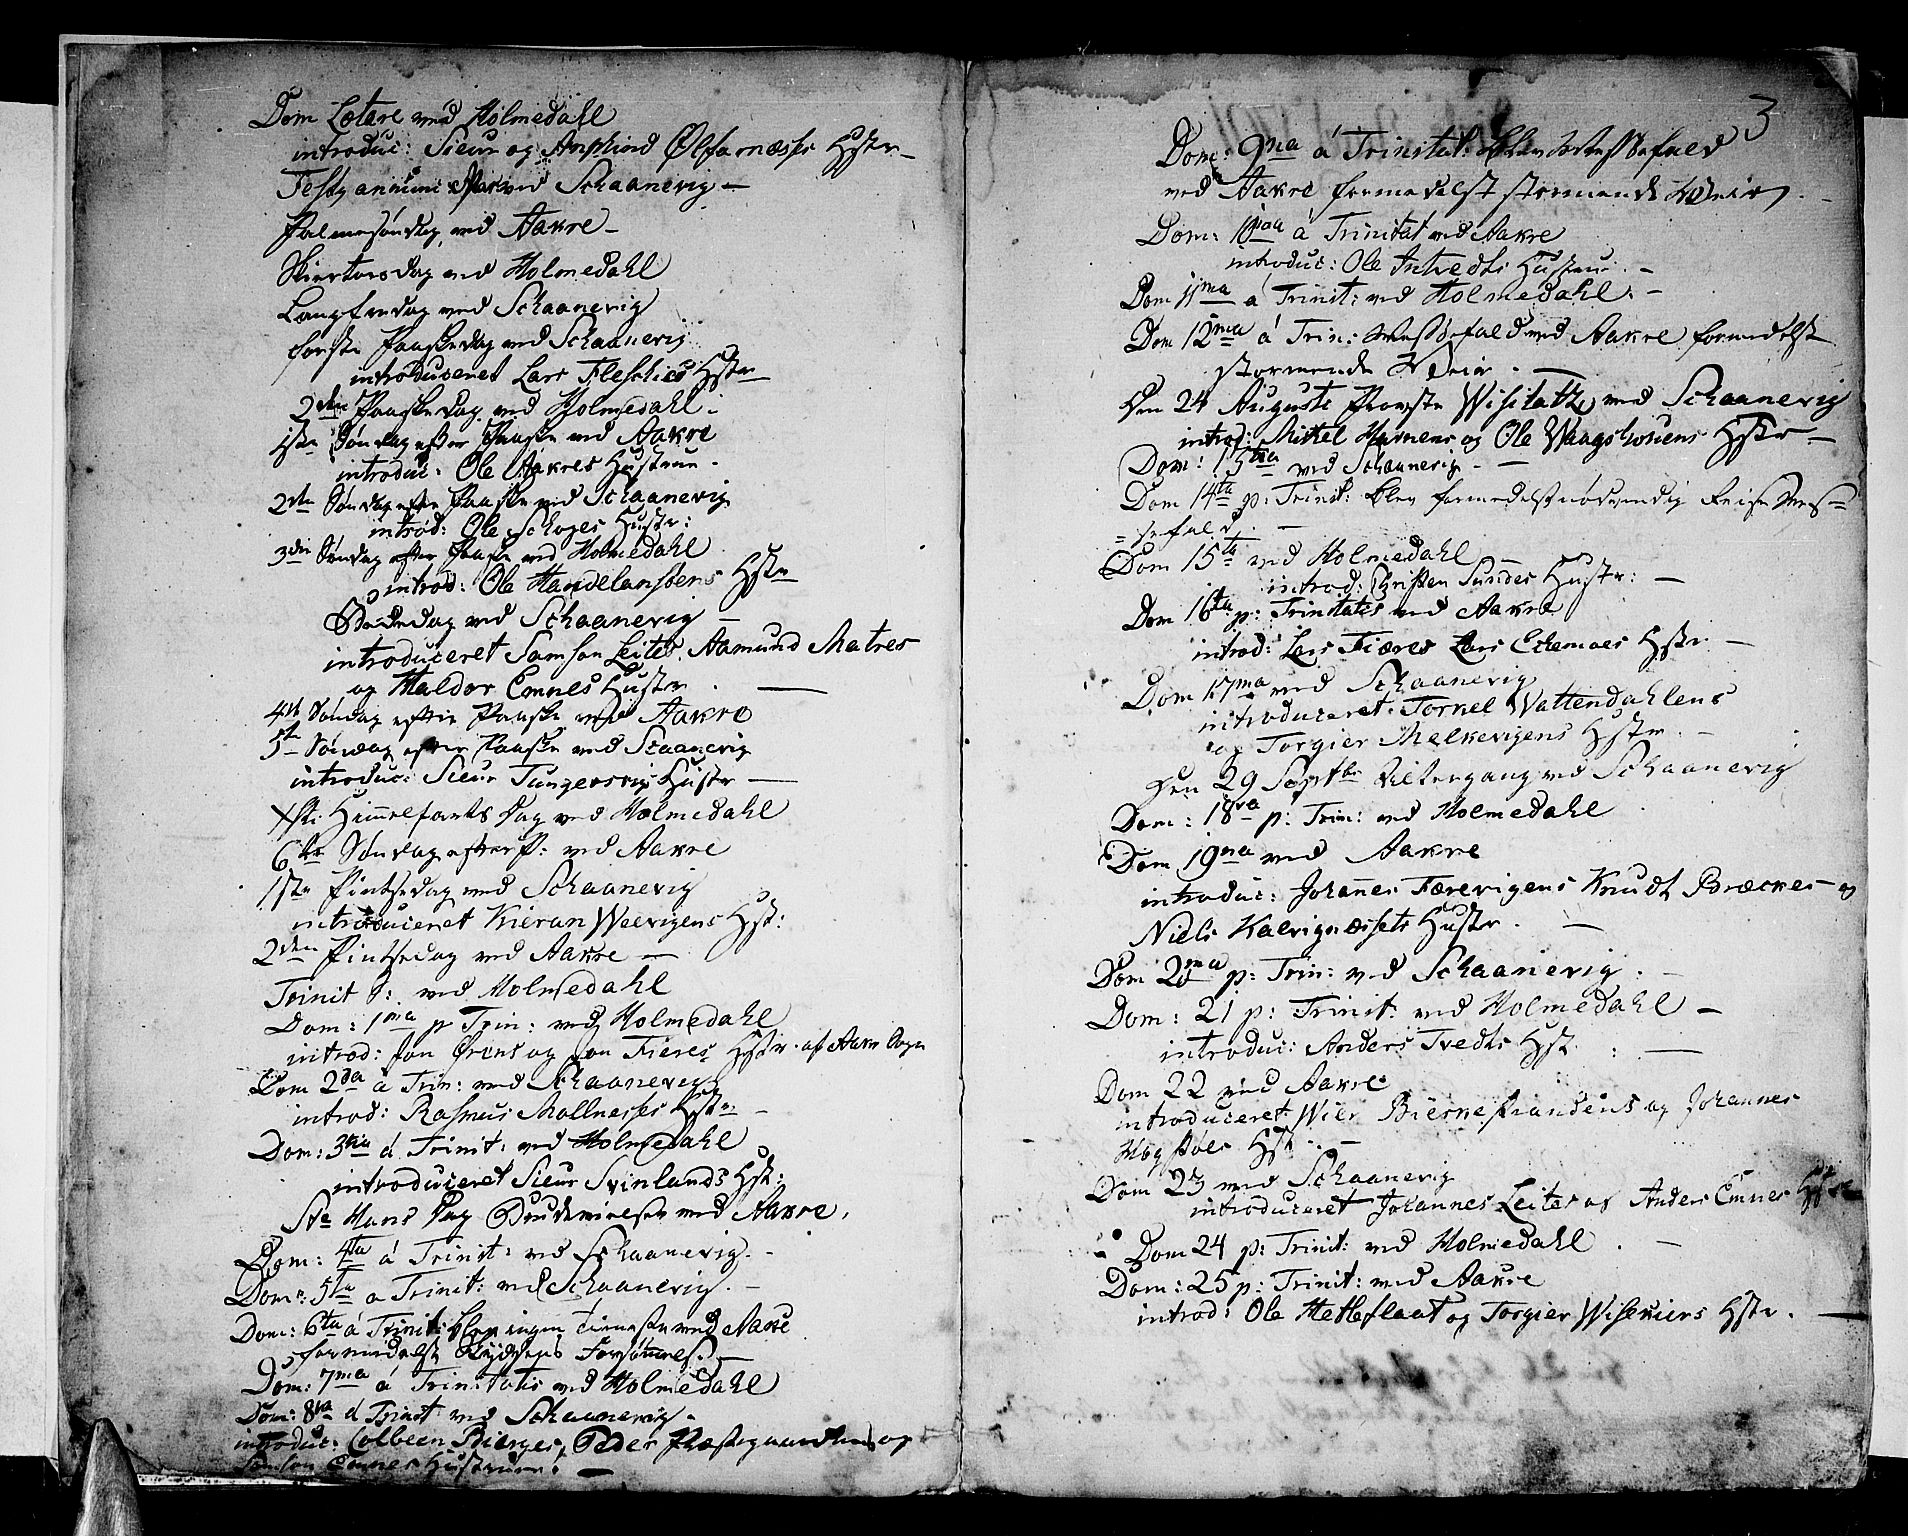 Dom Lætare ved Holmedahl
introduc: Sieur og Amskind Ølfarnæsses Hstr
Festo annunc: Mariæ ved Schaanevig
Palmesøndag ved Aakre
Skiertorsdag ved Holmedahl
Langfredag ved Schaanevig
første Paaskedag ved Schaanevig
introduceret Lars Hstr
2den Paaskedag ved Holmedahl
1ste Søndag efter Paaske ved Aakre
introduc: Ole Aakres Hustrue
2den Søndag efter Paaske ved Schaanevig
introd: Ole Schoges Hustr:
3die Søndag efter Paaske ved Holmedahl
introd: Ole Handelandsens Hstr
Bededag ved Schaanevig
introduceret Samson Leites, Aamund Matres
og Haldor Emnes Hustr
4de Søndag efter Paaske ved Aakre
5te Søndag efter Paaske ved Scaanevig
introduc: Sieur Tungesvigs Hustr
Xsti Himmelfarts Dag ved Holmedahl
6te Søndag efter P: ved Aakre
1ste Pintsedag ved Schaanevig
introduceret Kieran Weevigens Hst:
2den Pintsedag ved Aakre
Trinit S: ved Holmedahl
Dom: 1ma p Trin: ved Holmedahl
introd: Jon Ørens og Jon Fieres Hstr. af Aakre Sogn
Dom 2da á Trin: ved Schaanevig
introd: Rasmus Mollnesses Hstr
Dom: 3tia á Trinit: ved Holmedahl
introduceret Sieur Svinlands Hst:
Ste Hans Dag Brudevielse ved Aakre.
Dom: 4ta á Trinit: ved Schaanevig.
Dom: 5ta a Trinit: ved Schaanevig.
Dom: 6ta á Trinit: blev ingen Tieneste ved Aakre
formedelst Skydsens Forsømmels.
Dom: 7ma á Trinitatis ved Holmedahl
Dom: 8va á Trinit ved Schaanevig.
introduc: Colbeen Bierges, Peder Præstegaardens og
Samson Emnes Hustruer.
3
Dom: 9na á Trinitat: blev Messefald
ved Aakre formedelst stormende Weir.
Dom: 10ma á Trinitat ved Aakre
introduc: Ole Tvedts Hustrue.
Dom 11ma á Trinit: ved Holmedahl.
Dom 12ma á Trin: Messefald ved Aakre formedelst
stormende Weir.
Den 24 Augusti Provste Visitatz ved Schaanevig
introd: Mickel Hames og Ole Waagshouens Hstr
Dom: 13tia ved Schaanevig.
Dom 14ta p: Trinit: blev formedelst nødvendig Reise Mes=
=sefald.
Dom 15ta ved Holmedahl
introd: Christen Sundes Hustr:
Dom 16ta p: Trinitatis ved Aakre
introd: Lars Fiæres Lars Eckemoes Hstr.
Dom 17ma ved Schaanevig
introduceret. Tornel Wattendahlens
og Torgier Melkevigens Hstr.
Den 29 Septbr Altergang ved Schaanevig
Dom: 18va p: Trin: ved Holmedahl
Dom 19na ved Aakre
introduc: Johannes Færevigens Knudt Bræckes og
Niels Kalvignæssets Hustr.
Dom 20ma p: Trin: ved Schaanevig.
Dom: 21 p: Trinit: ved Holmedahl
introduc: Anders Tvedts Hst.
Dom 22 ved Aakre
introduceret Wier Bierkestrandens og Johannes
Hst.
Dom 23 ved Schaanevig
introduceret Johannes Leites og Anders Emnes Hstr
Dom 24 p: Trinit: ved Holmedahl.
Dom: 25 p: Trinit: ved Aakre
introd: Ole Hetleflaat og Torgier Wiskiers Hstr.